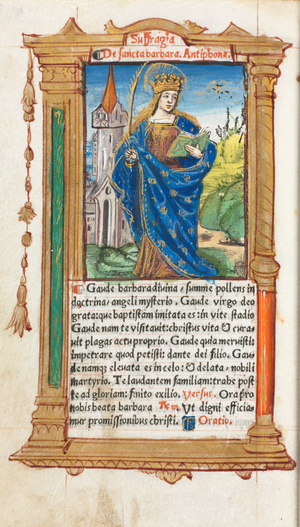 Suffragia
De sancta barbara. Antiphona.
Gaude barbara diuina / summe pollens in
doctrina / angeli mysterio. Gaude virgo deo
grata: que baptistam imitata es: in vite stadio
Gaude nam te visitauit christus vita & cura-
uit plagas actu proprio. Gaude quia meruisti:
impetrare quod petisti: dante dei filio. Gau-
de namq; eleuata es in celo: & delata / nobili
martyrio. Te laudantem familiam: trahe post
te ad gloriam: finito exilio. Versus. Ora pro
nobis beata barbara Rm. Vt digni efficia-
mur promissionibus christi. Oratio.